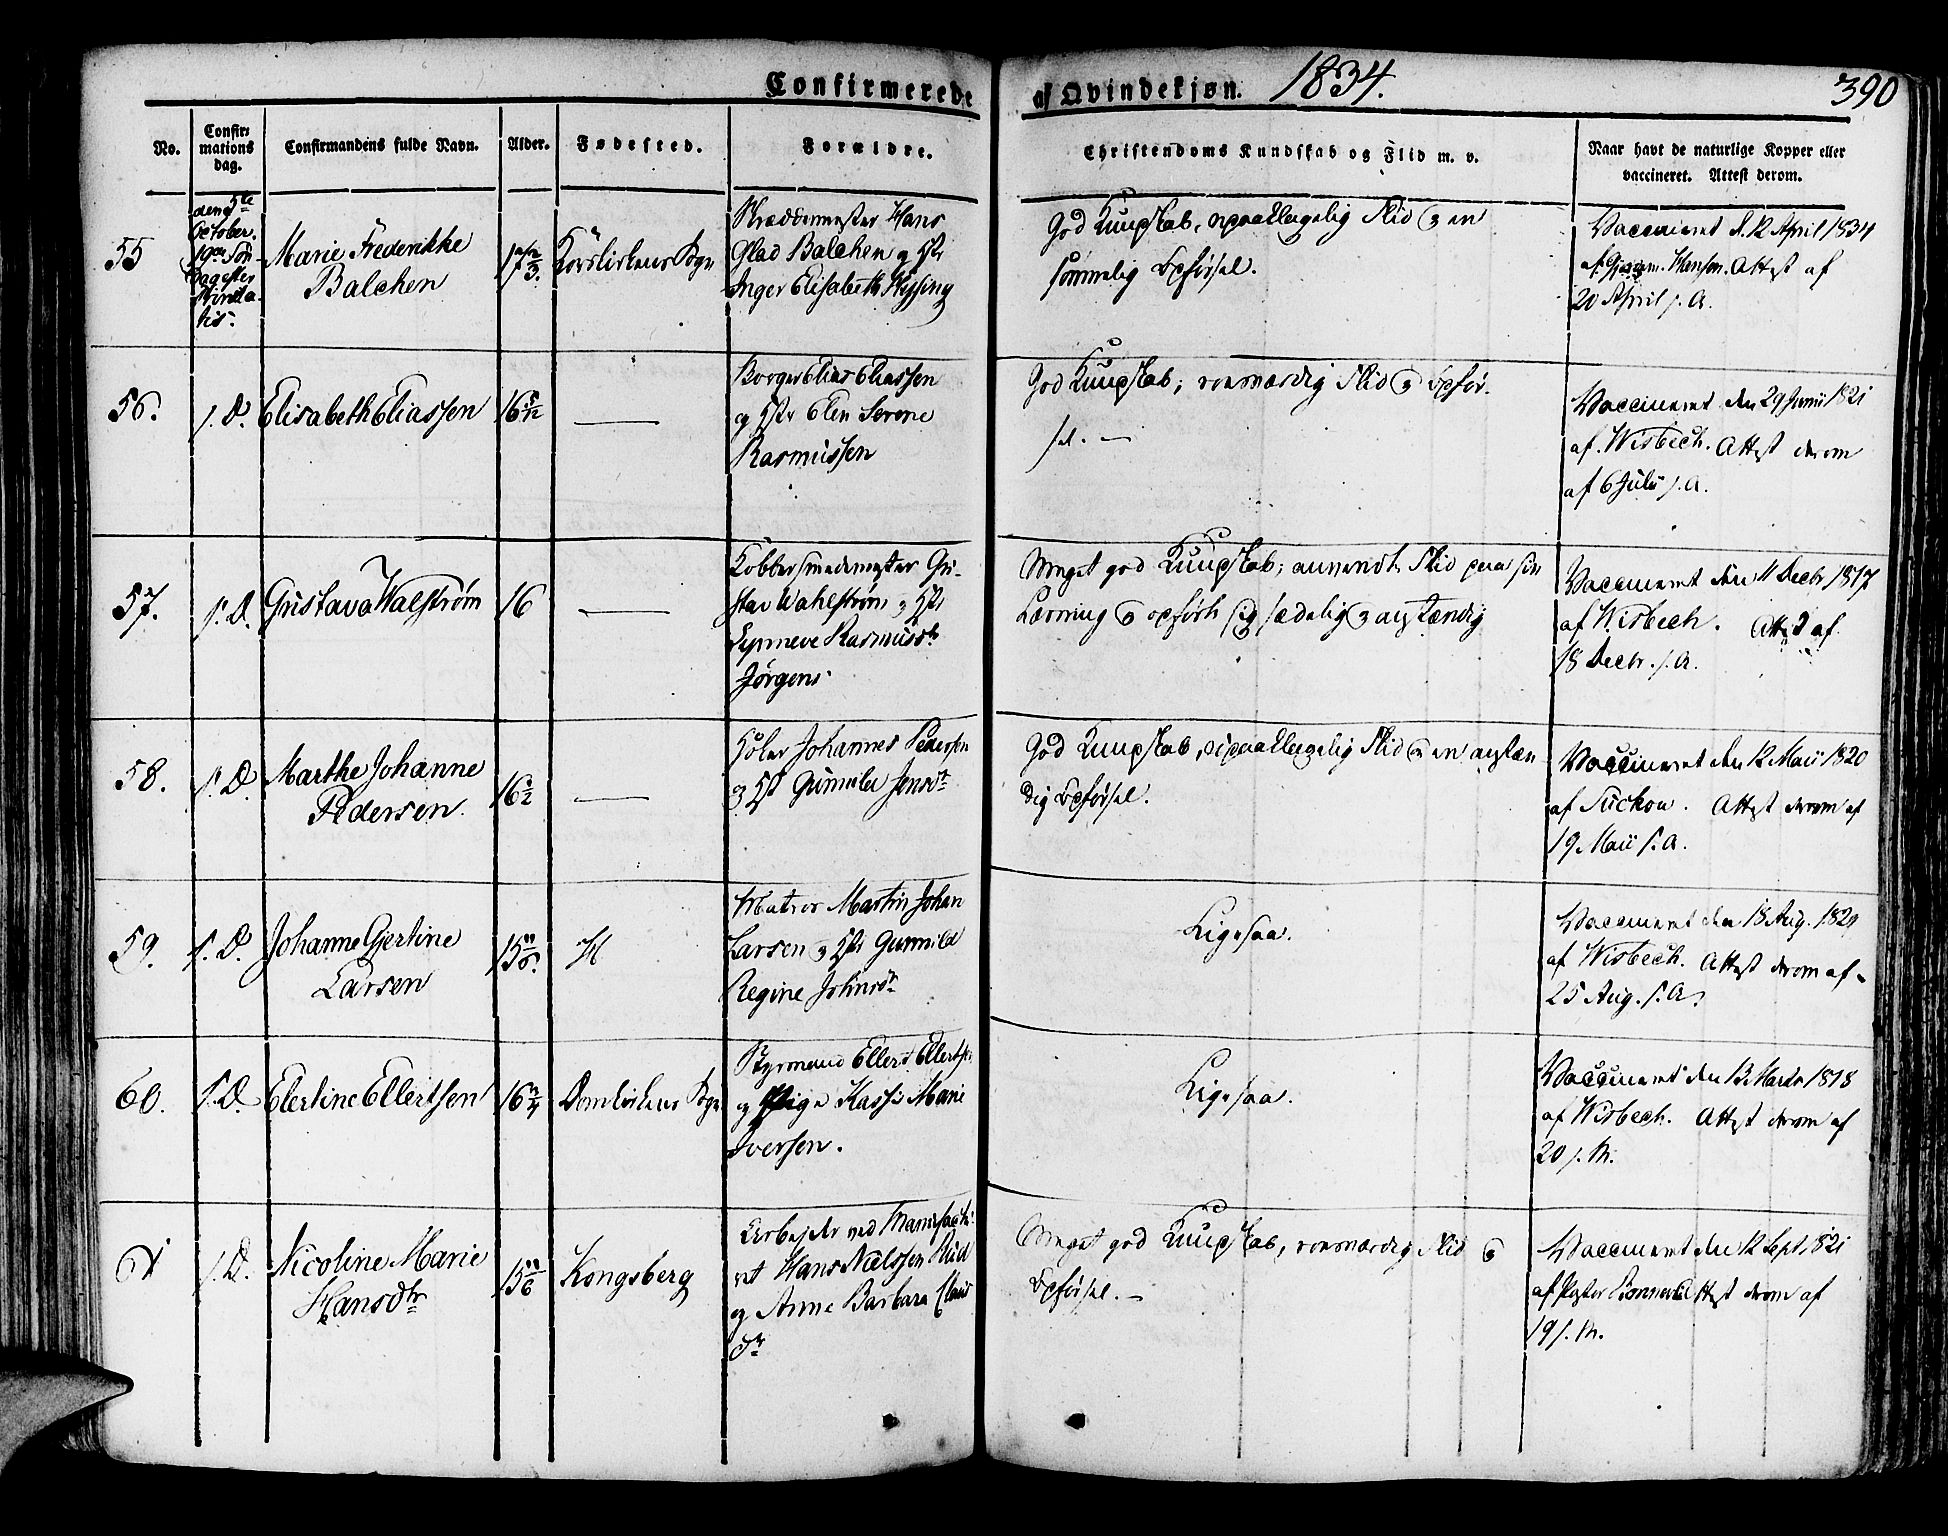 Confirmerede af Qvindekjøn. 1834. 390
No.
Confir-
mations
dag.
Confirmandens fulde Navn.
Alder.
Fødested.
Forældre.
Christendoms Kundskab og Flid m. v.
Naar havt de naturlige Kopper eller
vaccineret. Attest derom.
55
den 5te
October.
19de Søn-
dag efter
Trinita-
tis.
Marie Frederikke
Balchen
17 2/3.
Korskirkens Sogn
Skræddermester Hans
Glad Balchen og Hst
Inger Elisabeth Hysing
God Kundskab, upaaklagelig Flid og en
sømmelig Opførsel.
Vaccineret d. 12 April 1834
af Hansen. Attest af
20 April s. A.
56.
s. D.
Elisabeth Eliassen
16 5/12
—
Borger Elias Eliassen
og Hst Elen Serene
Rasmussen
God Kundskab; roesværdig Flid og Opfør-
sel. —
Vaccineret den 29 Junii 1821
af Wisbech. Attest derom
af 6 Julii s. A.
57.
s. D.
Gustava Walstrøm
16
—
Kobbersmedmester Gu-
stav Wahlstrøm og Hst
Synneve Rasmusdr
Jørgens
Meget god Kundskab; anvendt Flid paa sin
Lærning og opført sig sædelig og anstændig
Vaccineret den 11 Decbr 1817
af Wisbech. Attest af
18 Decbr. s. A.
58.
s. D.
Marthe Johanne
Pedersen
16 1/2
—
Johannes Pedersen
og Hst Gunnild Jensdr
God Kundskab, upaaklagelig Flid og en anstæn-
dig Opførsel.
Vaccineret den 12 Maii 1820
af Suckow. Attest derom af
19 Maii s. A.
59.
s. D.
Johanne Gjertine
Larsen
Matros Martin Johan
Larsen og Hst Gunnild
Regine Johnsdr
Ligesaa.
Vaccineret den 18 Aug. 1820
af Wisbech. Attest derom af
25 Aug. s. A.
60.
s. D.
Elertine Ellertsen
16 3/4
Domkirkens Sogn
Styrmand Ellert Ellertsen
og Pige Kassi Marie
Iversen.
Ligesaa.
Vaccineret den 13 Marts 1818
af Wisbech. Attest derom af
20 s. M.
61
s. D.
Nicoline Marie
Hansdtr
Kongsberg
Arbejder ved Manufactu-
ret Hans Nielssen Rud
og Anne Barbara Claus-
dr
Meget god Kundskab, roesværdig Flid og
Opførsel. —
Vaccineret den 12 Sept 1821
af Pastor Bonnevie Attest derom af
19 s. M.